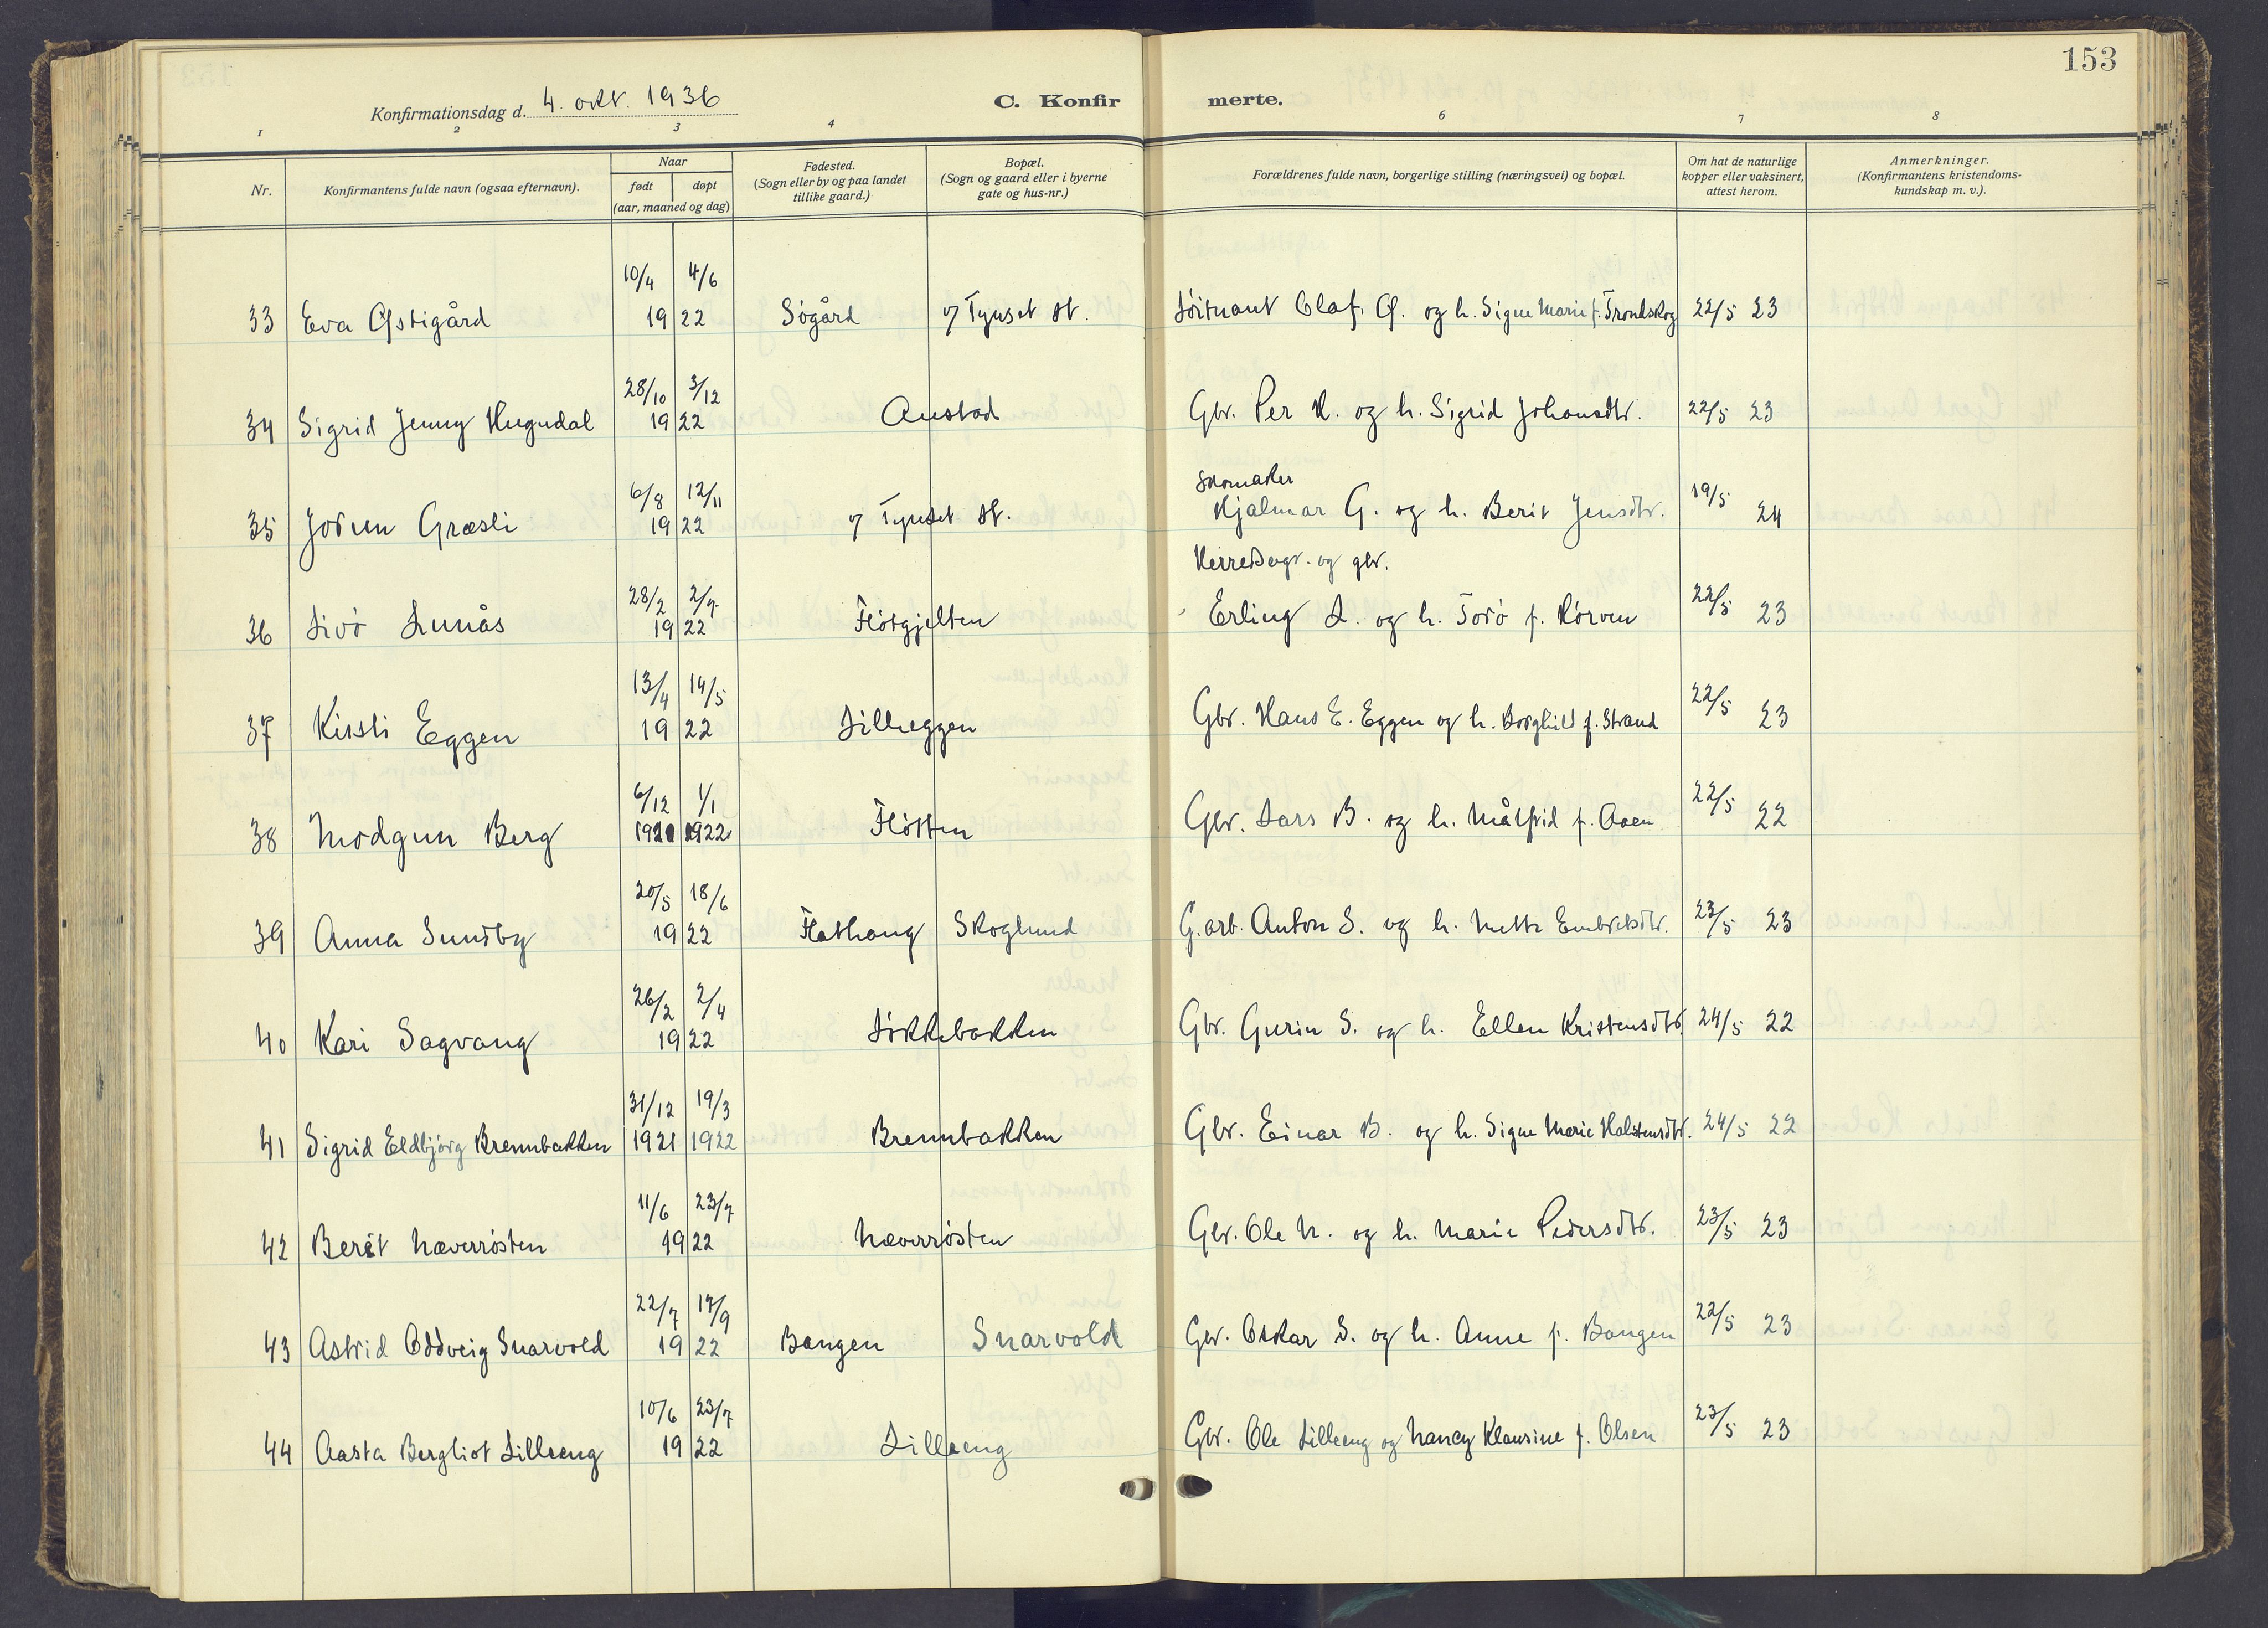 153
Konfirmationsdag d. 4. okt. 1936
C. Konfirmerte.
1 2 3 4 6 7 8
Nr.
Konfirmantens fulde navn (ogsaa efternavn).
Naar
født
døpt
(aar, maaned og dag)
Fødested.
(Sogn eller by og paa landet
tillike gaard.)
Bopæl.
(Sogn og gaard eller i byerne
gate og hus-nr.)
Forældrenes fulde navn, borgerlige stilling (næringsvei) og bopæl.
Om hat de naturlige
kopper eller vaksinert,
attest herom.
Anmerkninger.
(Konfirmantens kristendoms-
kundskap m. v.).
10/4 4/6
33 Eva Østigård 19 22 Søgård v/ Tynset st. Løitnant Olaf Ø. og h. Signe Marie f. Trondskog 22/5 23
28/10 3/12
34 Sigrid Jenny Hegndal 19 22 Austad Gbr. Per H. og h. Sigrid Johansdtr. 22/5 23
6/8 12/11 Skomaker
35 Jorun Græsli 19 22 v/ Tynset st. Hjalmar G. og h. Berit Jensdtr. 19/5 24
28/2 2/7 Herredsagr. og gbr.
36 Livø Lunås 19 22 Fløtgjelten Erling L. og h. Torø f. Rørven 22/5 23
13/4 14/5
37 Kirsti Eggen 19 22 Lilleeggen Gbr. Hans E. Eggen og h. Borghild f. Strand 22/5 23
6/12 1/1
38 Modgun Berg 1921 1922 Fløtten Gbr. Lars B. og h. Målfrid f. Aaen 22/5 22
20/5 18/6
39 Anna Sundby 19 22 Flathaug Skoglund G.arb. Anton S. og h. Mette Embretsdtr. 23/5 23
26/2 2/4
40 Kari Sagvang 19 22 Løkkebakken Gbr. Gurin S. og h. Ellen Kristensdtr. 24/5 22
31/12 19/3
41 Sigrid Eldbjørg Brennbakken 1921 1922 Brennbakken Gbr. Einar B. og h. Signe Marie Halstensdtr. 24/5 22
11/6 23/7
42 Berit Næverrøsten 19 22 Næverrøsten Gbr. Ole N. og h. Marie Pedersdtr. 23/5 23
22/7 17/9
43 Astrid Oddveig Snarvold 19 22 Bangen Snarvold Gbr. Oskar S. og h. Anne f. Bangen 22/5 23
10/6 23/7
44 Aasta Bergliot Lilleeng 19 22 Lilleeng Gbr. Ole Lilleeng og Nancy Klausine f. Olsen 23/5 23